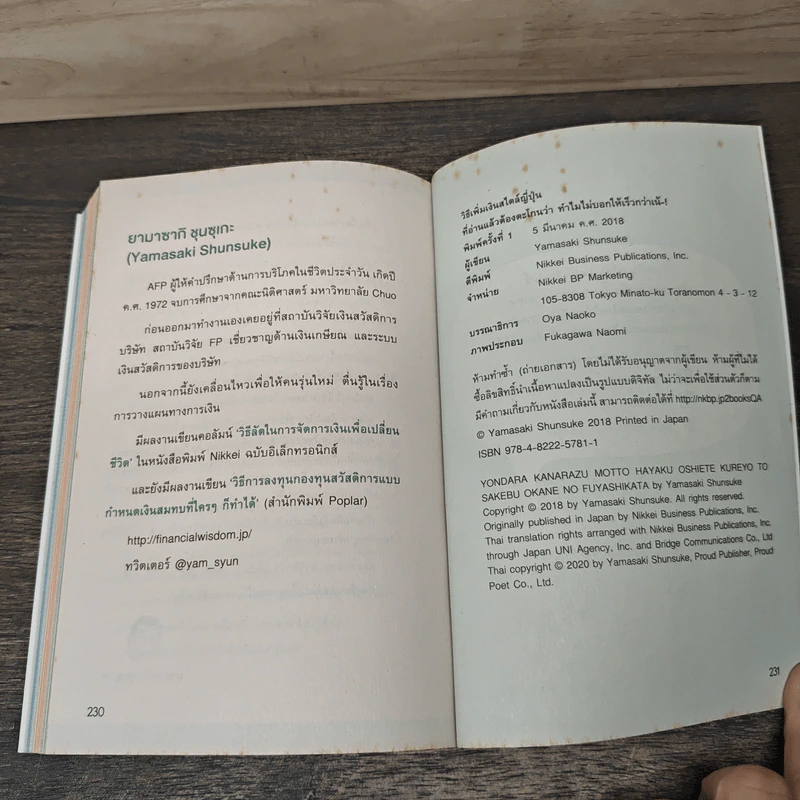 ยามาซากิ ชุนซุเกะ
(Yamasaki Shunsuke)
AFP ผู้ให้คำปรึกษาด้านการบริโภคในชีวิตประจำวัน เกิดปี
ค.ศ. 1972 จบการศึกษาจากคณะนิติศาสตร์ มหาวิทยาลัย Chuo
ก่อนออกมาทำงานเองเคยอยู่ที่สถาบันวิจัยเงินสวัสดิการ
บริษัท สถาบันวิจัย FP เชี่ยวชาญด้านเงินเกษียณ และระบบ
เงินสวัสดิการของบริษัท
นอกจากนี้ยังเคลื่อนไหวเพื่อให้คนรุ่นใหม่ ตื่นรู้ในเรื่อง
การวางแผนทางการเงิน
มีผลงานเขียนคอลัมน์ 'วิธีลัดในการจัดการเงินเพื่อเปลี่ยน
ชีวิต' ในหนังสือพิมพ์ Nikkei ฉบับอิเล็กทรอนิกส์
และยังมีผลงานเขียน 'วิธีการลงทุนกองทุนสวัสดิการแบบ
กำหนดเงินสมทบที่ใครๆ ก็ทำได้' (สำนักพิมพ์ Poplar)
http://financialwisdom.jp/
ทวิตเตอร์ @yam_syun
230
วิธีเพิ่มเงินสไตล์ญี่ปุ่น
ที่อ่านแล้วต้องตะโกนว่า ทำไมไม่บอกให้เร็วกว่าเน้-!
พิมพ์ครั้งที่ 1 5 มีนาคม ค.ศ. 2018
ผู้เขียน Yamasaki Shunsuke
ตีพิมพ์ Nikkei Business Publications, Inc.
จำหน่าย Nikkei BP Marketing
105-8308 Tokyo Minato-ku Toranomon 4 - 3 - 12
บรรณาธิการ Oya Naoko
ภาพประกอบ Fukagawa Naomi
ห้ามทำซ้ำ (ถ่ายเอกสาร) โดยไม่ได้รับอนุญาตจากผู้เขียน ห้ามผู้ที่ไม่ได้
ซื้อลิขสิทธิ์นำเนื้อหาแปลงเป็นรูปแบบดิจิทัล ไม่ว่าจะเพื่อใช้ส่วนตัวก็ตาม
มีคำถามเกี่ยวกับหนังสือเล่มนี้ สามารถติดต่อได้ที่ http://nkbp.jp2booksQA
© Yamasaki Shunsuke 2018 Printed in Japan
ISBN 978-4-8222-5781-1
YONDARA KANARAZU MOTTO HAYAKU OSHIETE KUREYO TO
SAKEBU OKANE NO FUYASHIKATA by Yamasaki Shunsuke
Copyright © 2018 by Yamasaki Shunsuke. All rights reserved.
Originally published in Japan by Nikkei Business Publications, Inc.
Thai translation rights arranged with Nikkei Business Publications, Inc.
through Japan UNI Agency, Inc. and Bridge Communications Co., Ltd
Thai copyright © 2020 by Yamasaki Shunsuke, Proud Publisher, Proud
Poet Co., Ltd.
231